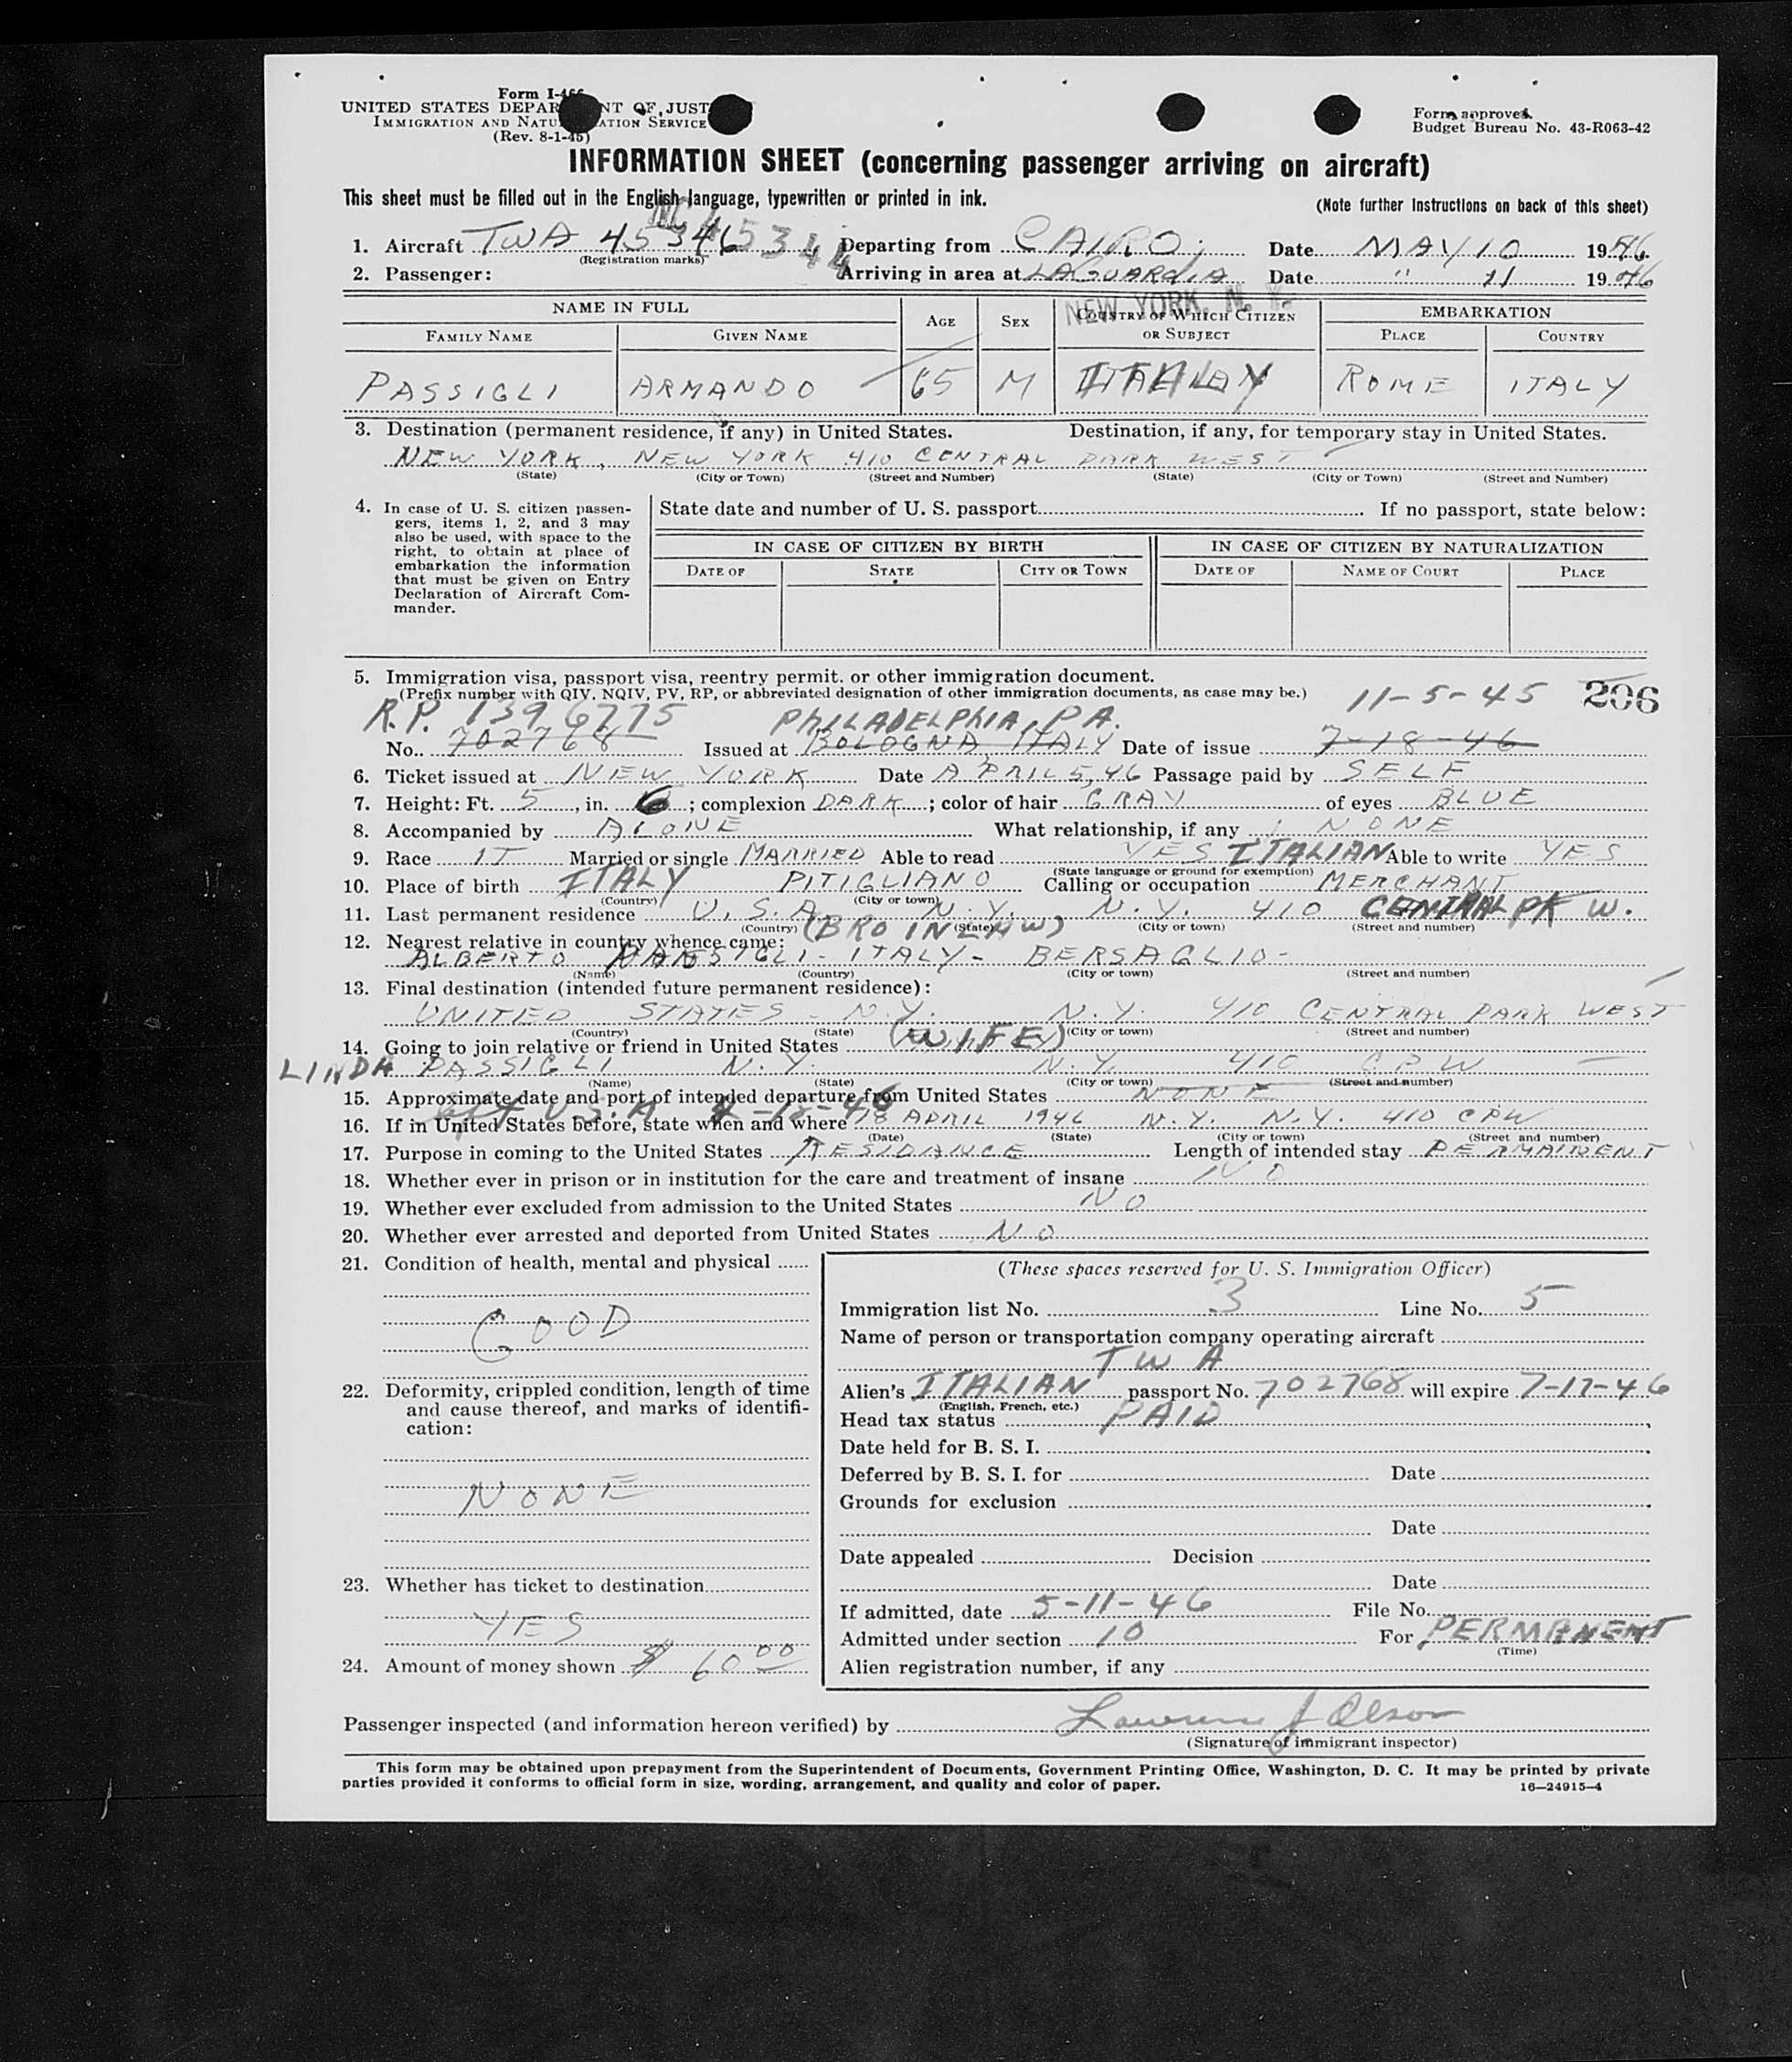 Form I-466
UNITED STATES DEPARTMENT OF JUSTICE
IMMIGRATION AND NATURALIZATION SERVICE
(Rev. 8-1-45)
Form approved.
Budget Bureau No. 43-R063-42
INFORMATION SHEET (concerning passenger arriving on aircraft)
This sheet must be filled out in the English language, typewritten or printed in ink.
(Note further instructions on back of this sheet)
NC 45344
1. Aircraft TWA 45346 Departing from CAIRO. Date MAY 10 1946
(Registration marks)
2. Passenger: Arriving in area at LAGUARDIA Date " 11 1946
NEW YORK, N. Y.
NAME IN FULL AGE SEX COUNTRY OF WHICH CITIZEN OR SUBJECT EMBARKATION
FAMILY NAME GIVEN NAME PLACE COUNTRY
PASSIGLI ARMANDO 65 M ITALY ROME ITALY
3. Destination (permanent residence, if any) in United States. Destination, if any, for temporary stay in United States.
NEW YORK, NEW YORK 410 CENTRAL PARK WEST
(State) (City or Town) (Street and Number) (State) (City or Town) (Street and Number)
4. In case of U. S. citizen passen-
gers, items 1, 2, and 3 may
also be used, with space to the
right, to obtain at place of
embarkation the information
that must be given on Entry
Declaration of Aircraft Com-
mander.
State date and number of U. S. passport If no passport, state below:
IN CASE OF CITIZEN BY BIRTH IN CASE OF CITIZEN BY NATURALIZATION
DATE OF STATE CITY OR TOWN DATE OF NAME OF COURT PLACE
5. Immigration visa, passport visa, reentry permit. or other immigration document.
(Prefix number with QIV, NQIV, PV, RP, or abbreviated designation of other immigration documents, as case may be.) 11-5-45 206
R.P. 1396775 PHILADELPHIA, PA.
No. 702768 Issued at BOLOGNA, ITALY Date of issue 7-18-46
6. Ticket issued at NEW YORK Date APRIL 5, 46 Passage paid by SELF
7. Height: Ft. 5, in. 6; complexion DARK; color of hair GRAY of eyes BLUE
8. Accompanied by ALONE What relationship, if any NONE
9. Race IT Married or single MARRIED Able to read YES ITALIAN Able to write YES
(State language or ground for exemption)
10. Place of birth ITALY PITIGLIANO Calling or occupation MERCHANT
(Country) (City or town)
11. Last permanent residence U.S.A. N.Y. N.Y. 410 CENTRAL PK W.
(Country) (State) (City or town) (Street and number)
(BRO IN LAW)
12. Nearest relative in country whence came:
ALBERTO ITALY - BERSAGLIO -
(Name) (Country) (City or town) (Street and number)
13. Final destination (intended future permanent residence):
UNITED STATES - N.Y. N.Y. 410 CENTRAL PARK WEST
(Country) (State) (City or town) (Street and number)
14. Going to join relative or friend in United States (WIFE)
LINDA PASSIGLI N.Y. N.Y. 410 CPW
(Name) (State) (City or town) (Street and number)
15. Approximate date and port of intended departure from United States NONE
left U.S.A 4-18-46
16. If in United States before, state when and where 18 APRIL 1946 N.Y. N.Y. 410 CPW
(Date) (State) (City or town) (Street and number)
17. Purpose in coming to the United States RESIDANCE Length of intended stay PERMAINENT
18. Whether ever in prison or in institution for the care and treatment of insane NO
19. Whether ever excluded from admission to the United States NO
20. Whether ever arrested and deported from United States NO
21. Condition of health, mental and physical
GOOD
22. Deformity, crippled condition, length of time
and cause thereof, and marks of identifi-
cation:
NONE
23. Whether has ticket to destination
YES
24. Amount of money shown $ 60 00
(These spaces reserved for U. S. Immigration Officer)
Immigration list No. 3 Line No. 5
Name of person or transportation company operating aircraft
TWA
Alien's ITALIAN passport No. 702768 will expire 7-17-46
(English, French, etc.)
Head tax status PAID
Date held for B. S. I.
Deferred by B. S. I. for Date
Grounds for exclusion
Date
Date appealed Decision
Date
If admitted, date 5-11-46 File No.
Admitted under section 10 For PERMANENT
(Time)
Alien registration number, if any
Passenger inspected (and information hereon verified) by Lawrence J Olson
(Signature of immigrant inspector)
This form may be obtained upon prepayment from the Superintendent of Documents, Government Printing Office, Washington, D. C. It may be printed by private
parties provided it conforms to official form in size, wording, arrangement, and quality and color of paper. 16—24915-4